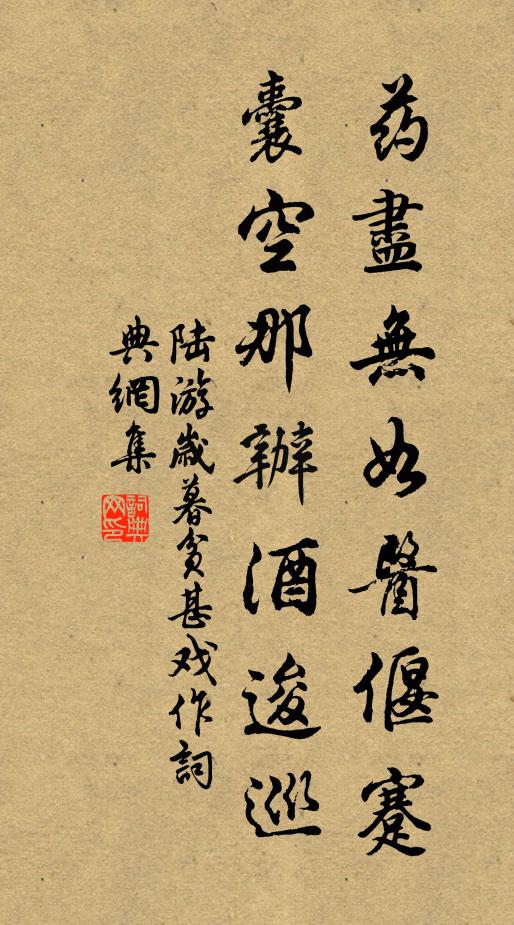 药盡無如醫偃蹇
囊空那辦酒逡巡
陆游歲暮贫甚戏作詞
典網集
詞典
网印